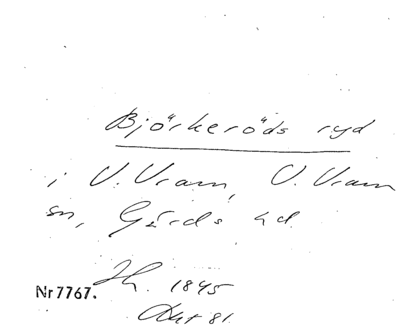 Björkeröds ryd
i V. Vram, V. Vram
sn, Gärds hd.
Hh. 1845
Nr 7767.
Akt 81.